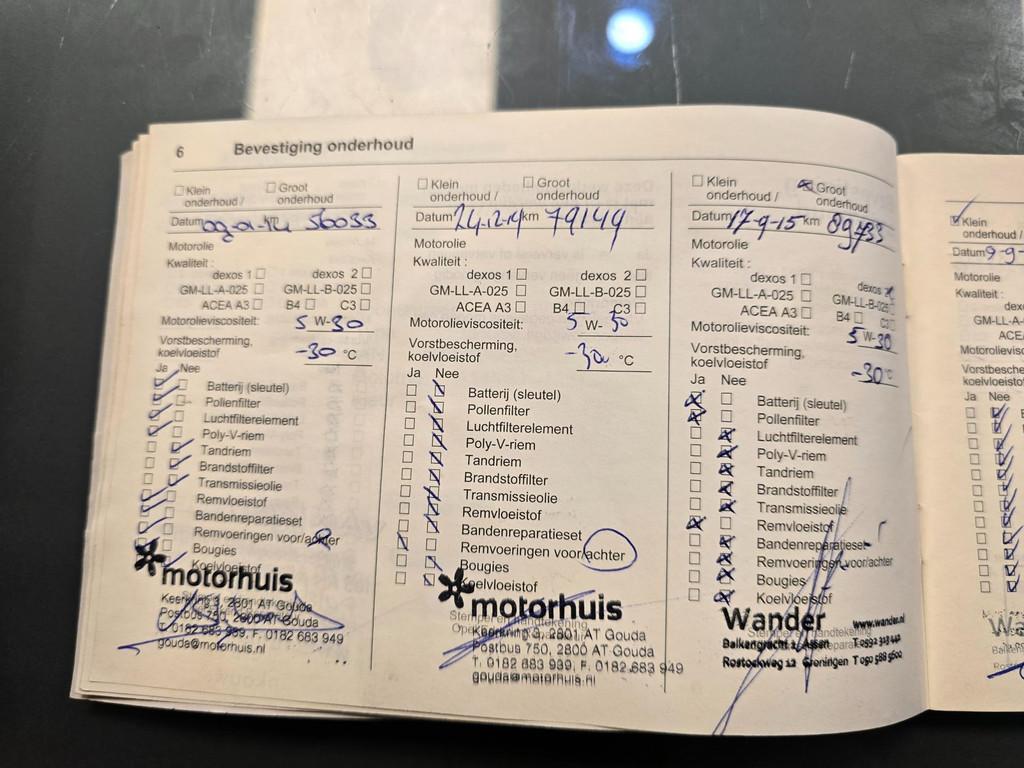 6 Bevestiging onderhoud
Klein onderhoud /
Groot onderhoud
Datum km 56033
Motorolie
Kwaliteit :
dexos 1 dexos 2
GM-LL-A-025 GM-LL-B-025
ACEA A3 B4 C3
Motorolieviscositeit: 5 W-30
Vorstbescherming,
koelvloeistof -30 °C
Ja Nee
Batterij (sleutel)
Pollenfilter
Luchtfilterelement
Poly-V-riem
Tandriem
Brandstoffilter
Transmissieolie
Remvloeistof
Bandenreparatieset
Remvoeringen voor/achter
Bougies
Koelvloeistof
motorhuis
Keerkring 3, 2801 AT Gouda
Postbus 750, 2800 AT Gouda
T. 0182 683 939, F. 0182 683 949
gouda@motorhuis.nl
Klein onderhoud /
Groot onderhoud
Datum 24-12-14 km 79149
Motorolie
Kwaliteit :
dexos 1 dexos 2
GM-LL-A-025 GM-LL-B-025
ACEA A3 B4 C3
Motorolieviscositeit: 5 W-
Vorstbescherming,
koelvloeistof -30 °C
Ja Nee
Batterij (sleutel)
Pollenfilter
Luchtfilterelement
Poly-V-riem
Tandriem
Brandstoffilter
Transmissieolie
Remvloeistof
Bandenreparatieset
Remvoeringen voor/achter
Bougies
Koelvloeistof
motorhuis
Stempel en handtekening
Keerkring 3, 2801 AT Gouda
Postbus 750, 2800 AT Gouda
T. 0182 683 939, F. 0182 683 949
gouda@motorhuis.nl
Klein onderhoud /
Groot onderhoud
Datum 17-9-15 km 89733
Motorolie
Kwaliteit :
dexos 1 dexos
GM-LL-A-025 GM-LL-B-025
ACEA A3 B4 C3
Motorolieviscositeit: 5 W-30
Vorstbescherming,
koelvloeistof -30 °C
Ja Nee
Batterij (sleutel)
Pollenfilter
Luchtfilterelement
Poly-V-riem
Tandriem
Brandstoffilter
Transmissieolie
Remvloeistof
Bandenreparatieset
Remvoeringen voor/achter
Bougies
Koelvloeistof
Wander www.wander.nl
Stempel en handtekening
Balkengracht Assen
Rostockweg 12 Groningen T 050 588 5600
Klein
onderhoud /
Datum 9-9-
Motorolie
Kwaliteit :
dex
GM-LL-A-
ACE
Motorolievisc
Vorstbesche
koelvloeistof
Ja Nee
Wa